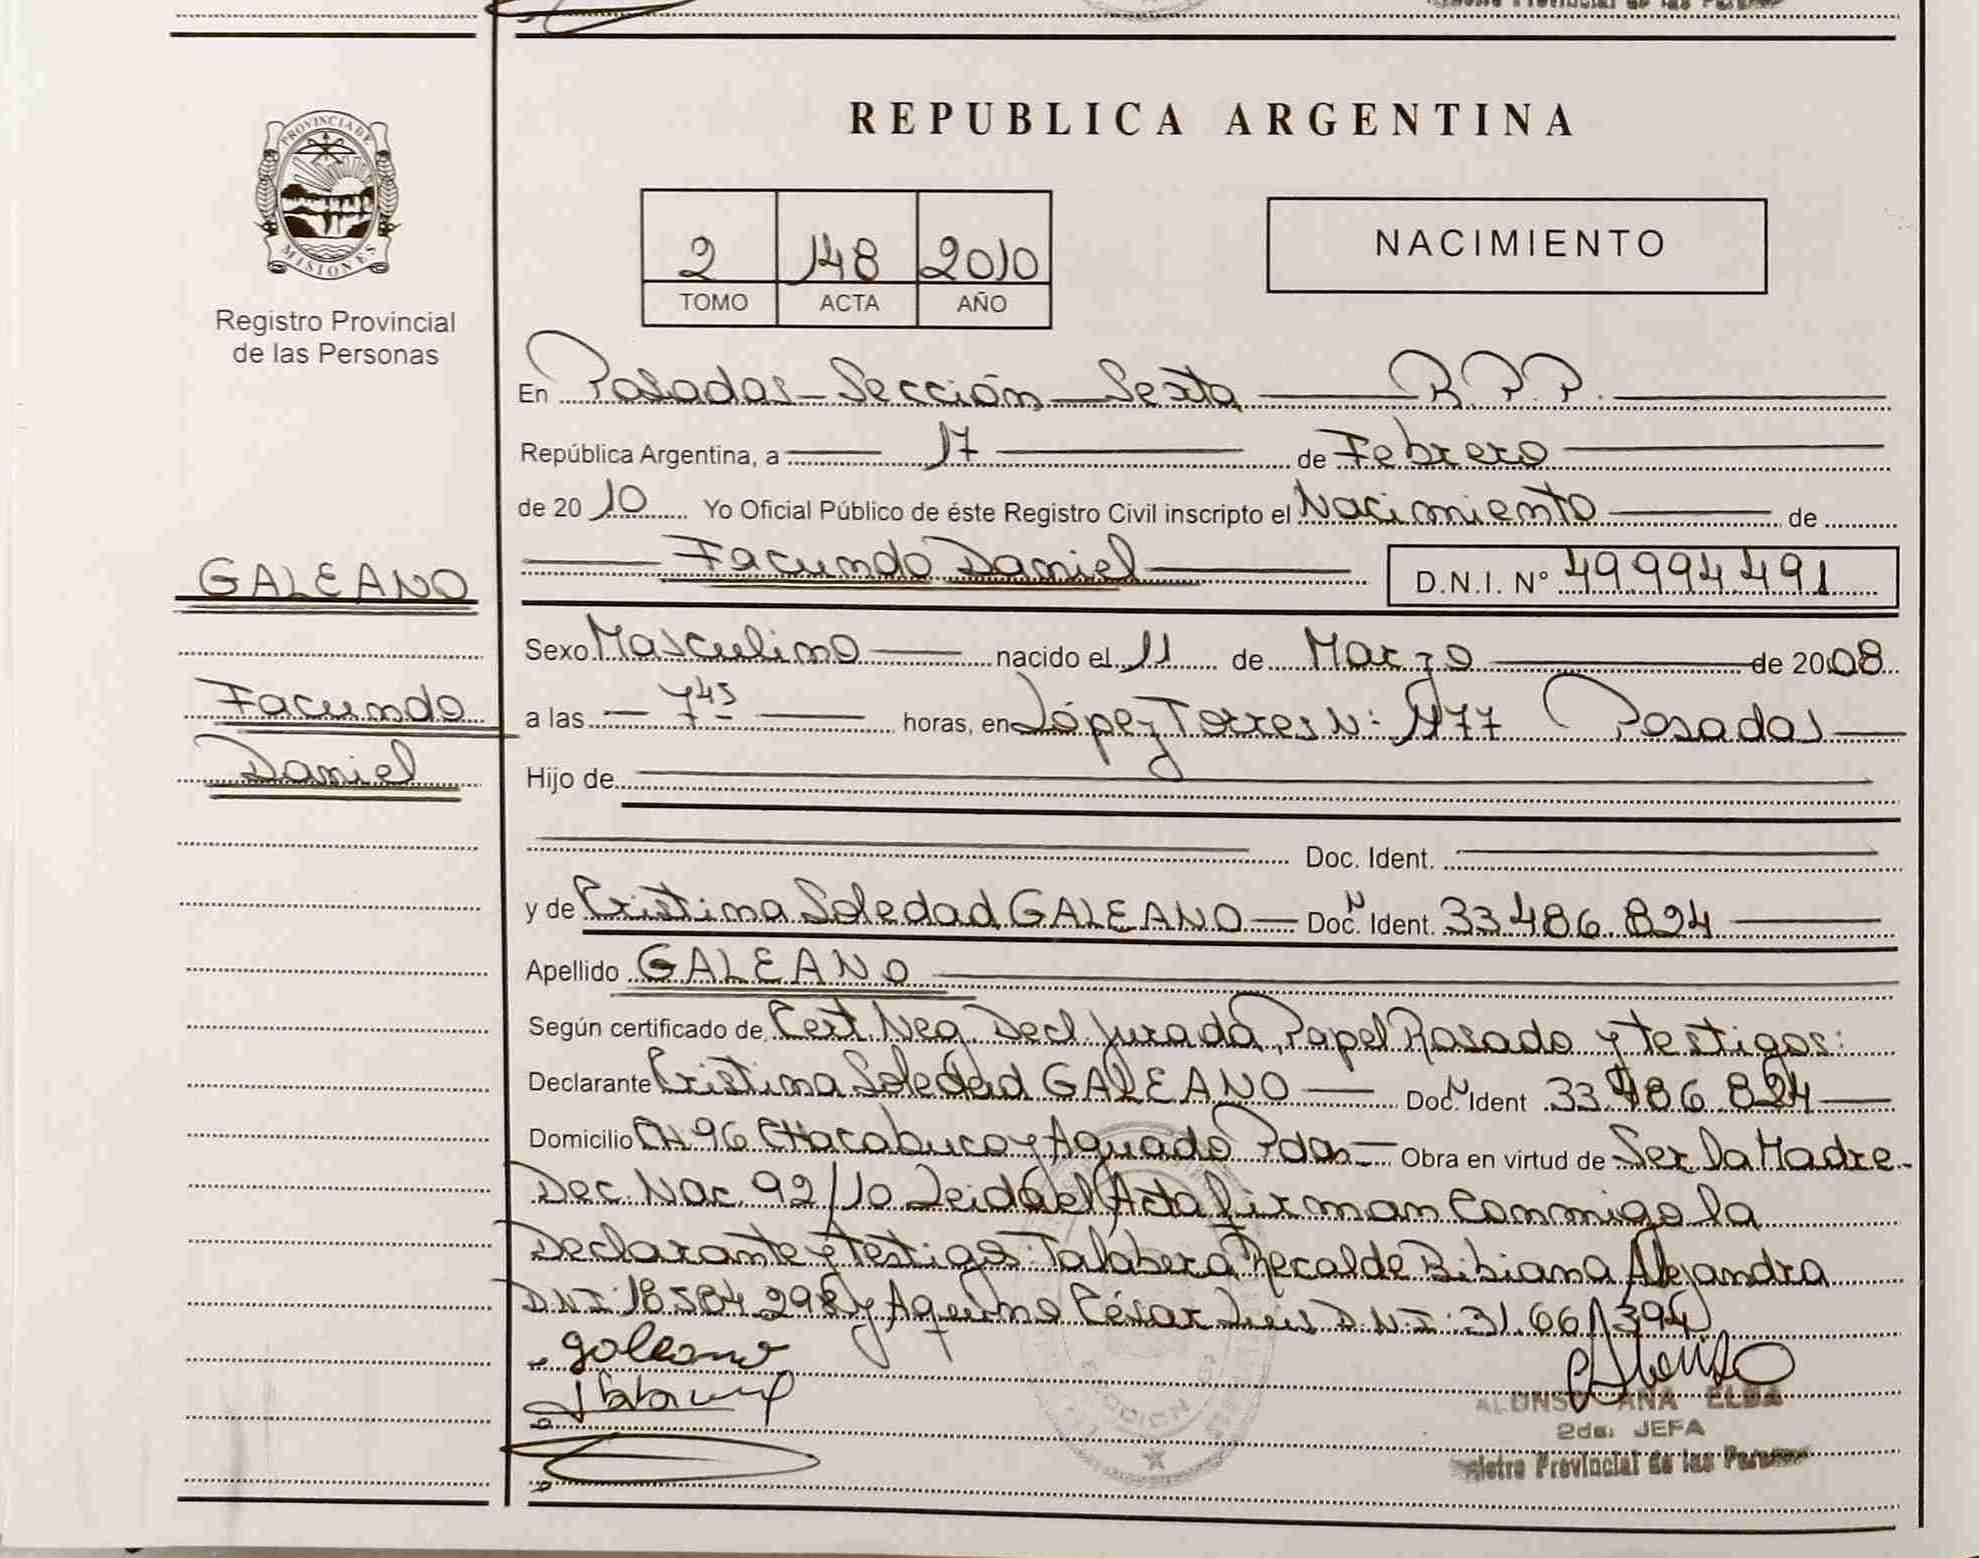 REPUBLICA ARGENTINA
PROVINCIA DE
MISIONES
Registro Provincial
de las Personas
2 148 2010
TOMO ACTA AÑO
NACIMIENTO
En Posadas - Sección - Sexta R.P.P.
República Argentina, a 17 de Febrero
de 2010 Yo Oficial Público de éste Registro Civil inscripto el Nacimiento de
Facundo Daniel D.N.I. Nº 49.994.491
GALEANO
Facundo
Daniel
Sexo Masculino nacido el 11 de Marzo de 2008
a las 7 45 horas, en López Torres N: 1177 Posadas
Hijo de
Doc. Ident.
y de Cristina Soledad GALEANO Doc. Ident. 33.486.824
Apellido GALEANO
Según certificado de Cert. Neg. Decl. Jurada, Papel Rosado y testigos:
Declarante Cristina Soledad GALEANO Doc. Ident 33.486.824
Domicilio CH 96 Chacabuco y Aguado Pdas Obra en virtud de Ser la Madre.
Dec. Nac. 92/10 Leida el Acta firman conmigo la
Declarante y testigos: Talabera Recalde Bibiana Alejandra
DNI: 18.584.298 y Aquino César Luis D.N.I: 31.661.394
Galeano
ALONSO ANA ELBA
2da. JEFA
Registro Provincial de las Personas
SECCION 6